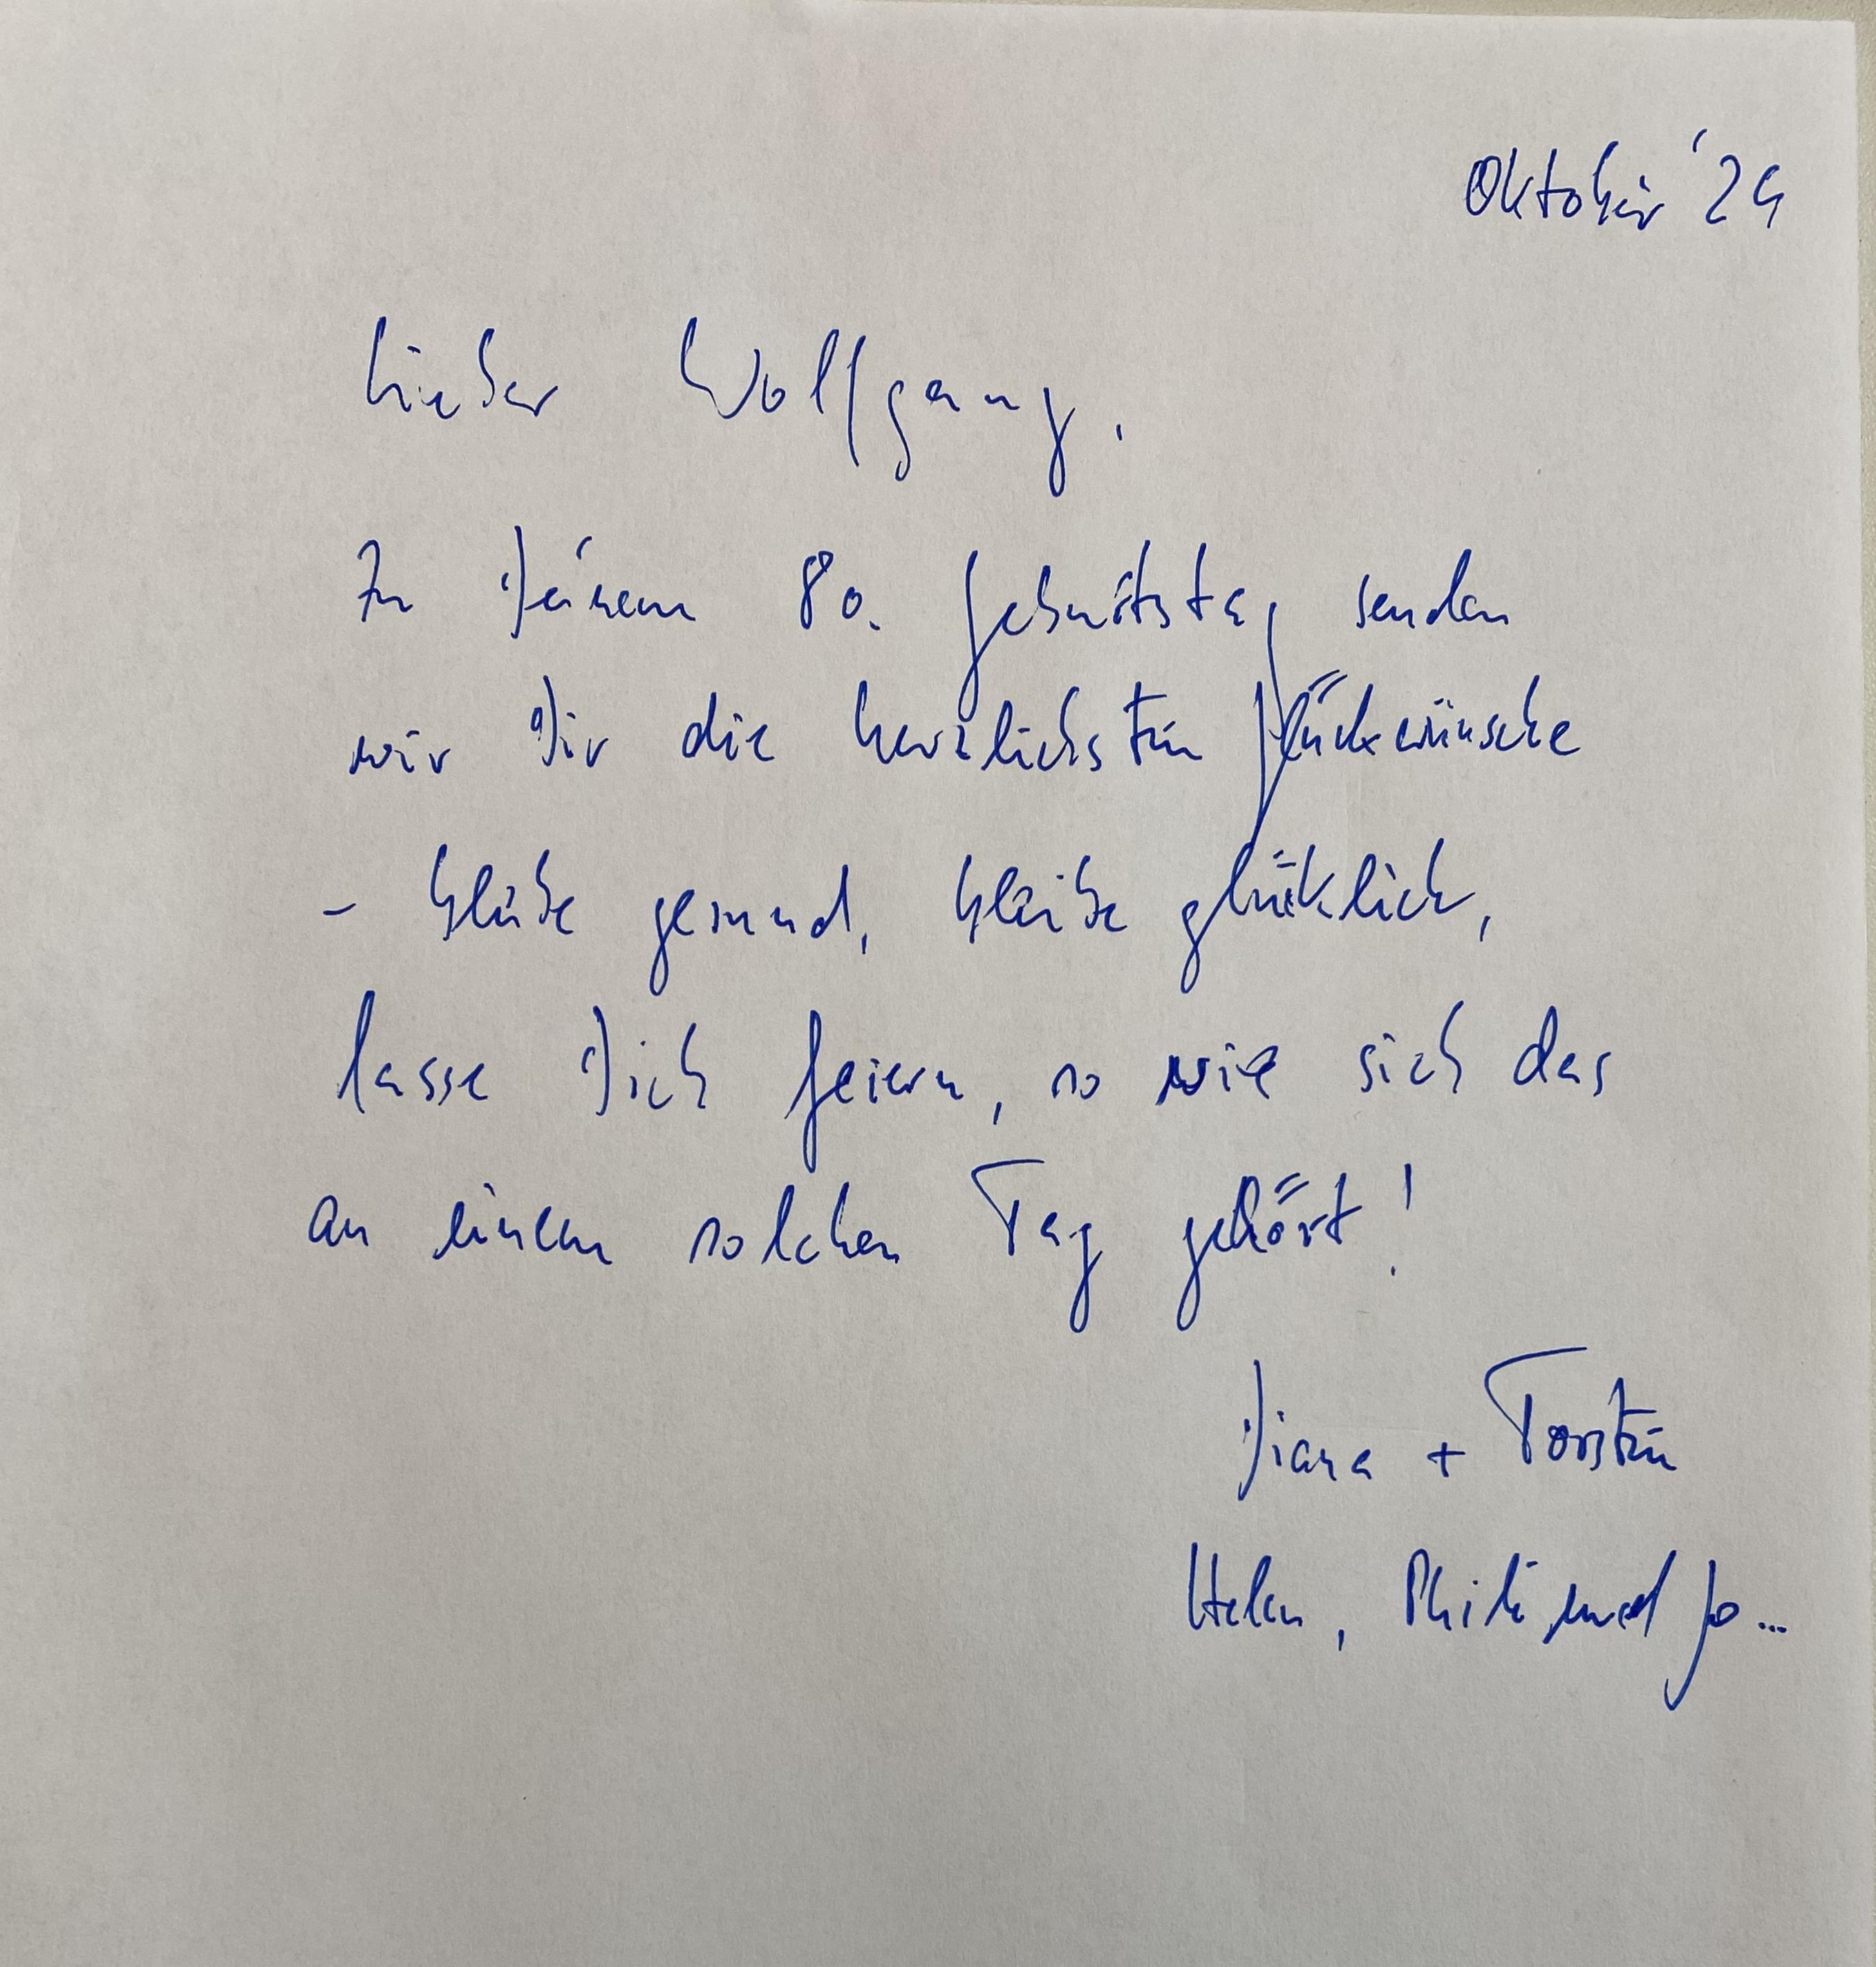 Oktober '24
Lieber Wolfgang,
Zu Deinem 80. Geburtstag senden
wir Dir die herzlichsten Glückwünsche
- bleibe gesund, bleibe glücklich,
lasse Dich feiern, so wie sich das
an einem solchen Tag gehört!
Diana + Torsten
Helen, und Jo...